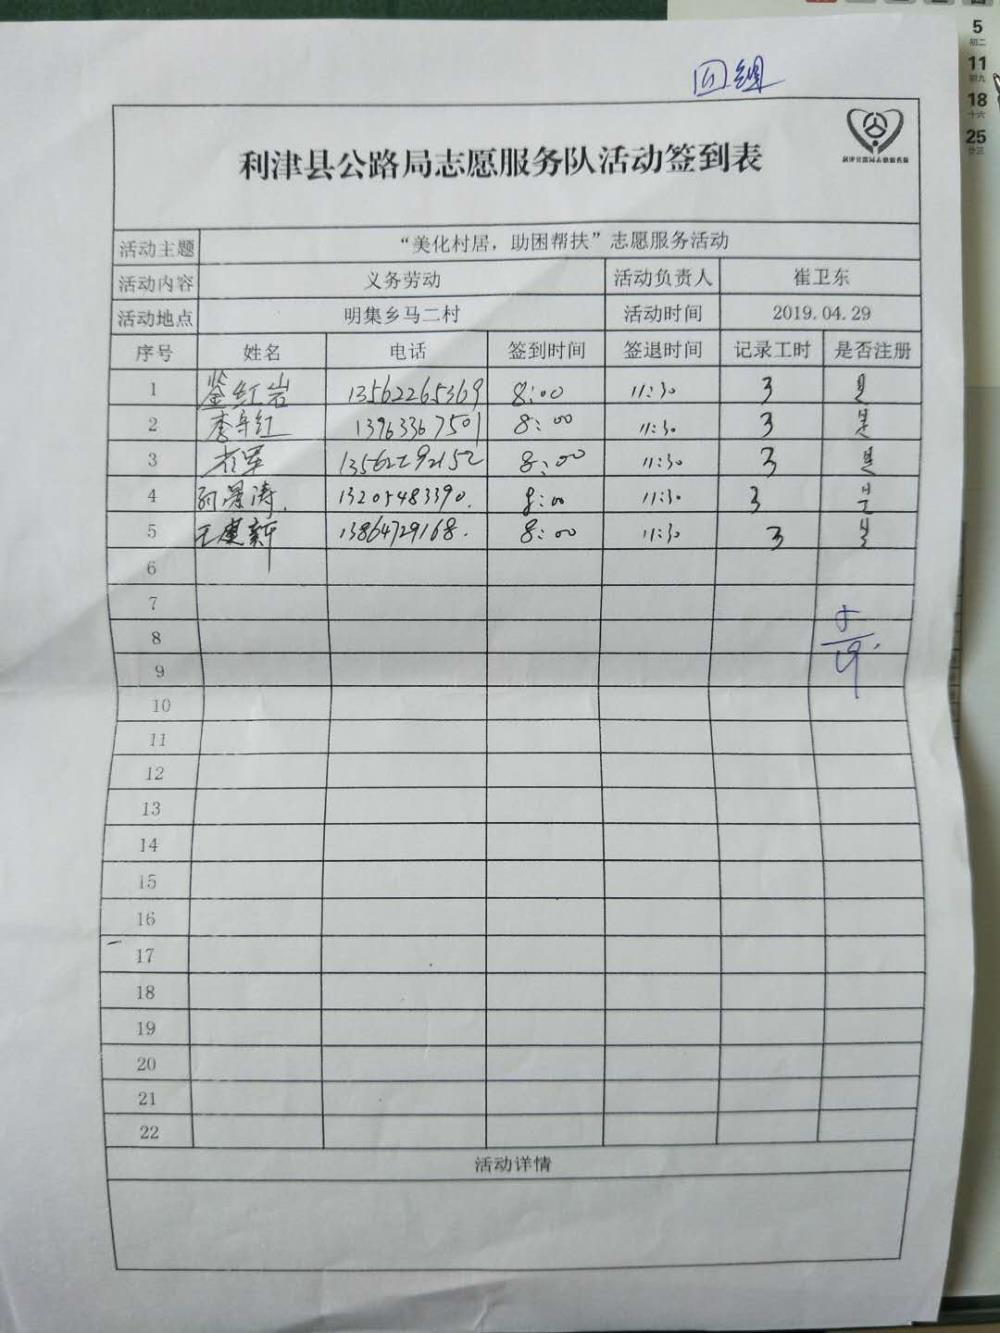 5
初二
11
初九
18
十六
25
廿三
利津县公路局志愿服务队活动签到表
利津县公路局志愿服务队
活动主题 “美化村居，助困帮扶”志愿服务活动
活动内容 义务劳动 活动负责人 崔卫东
活动地点 明集乡马二村 活动时间 2019.04.29
序号 姓名 电话 签到时间 签退时间 记录工时 是否注册
1 红岩 13562265369 8:00 11:30 3 是
2 李 红 13963367501 8:00 11:30 3 是
3 军 13562292152 8:00 11:30 3 是
4 涛. 13205483390. 8:00 11:30 3 是
5 王建新 13864729168. 8:00 11:30 3 是
6
7
8
9
10
11
12
13
14
15
16
17
18
19
20
21
22
活动详情